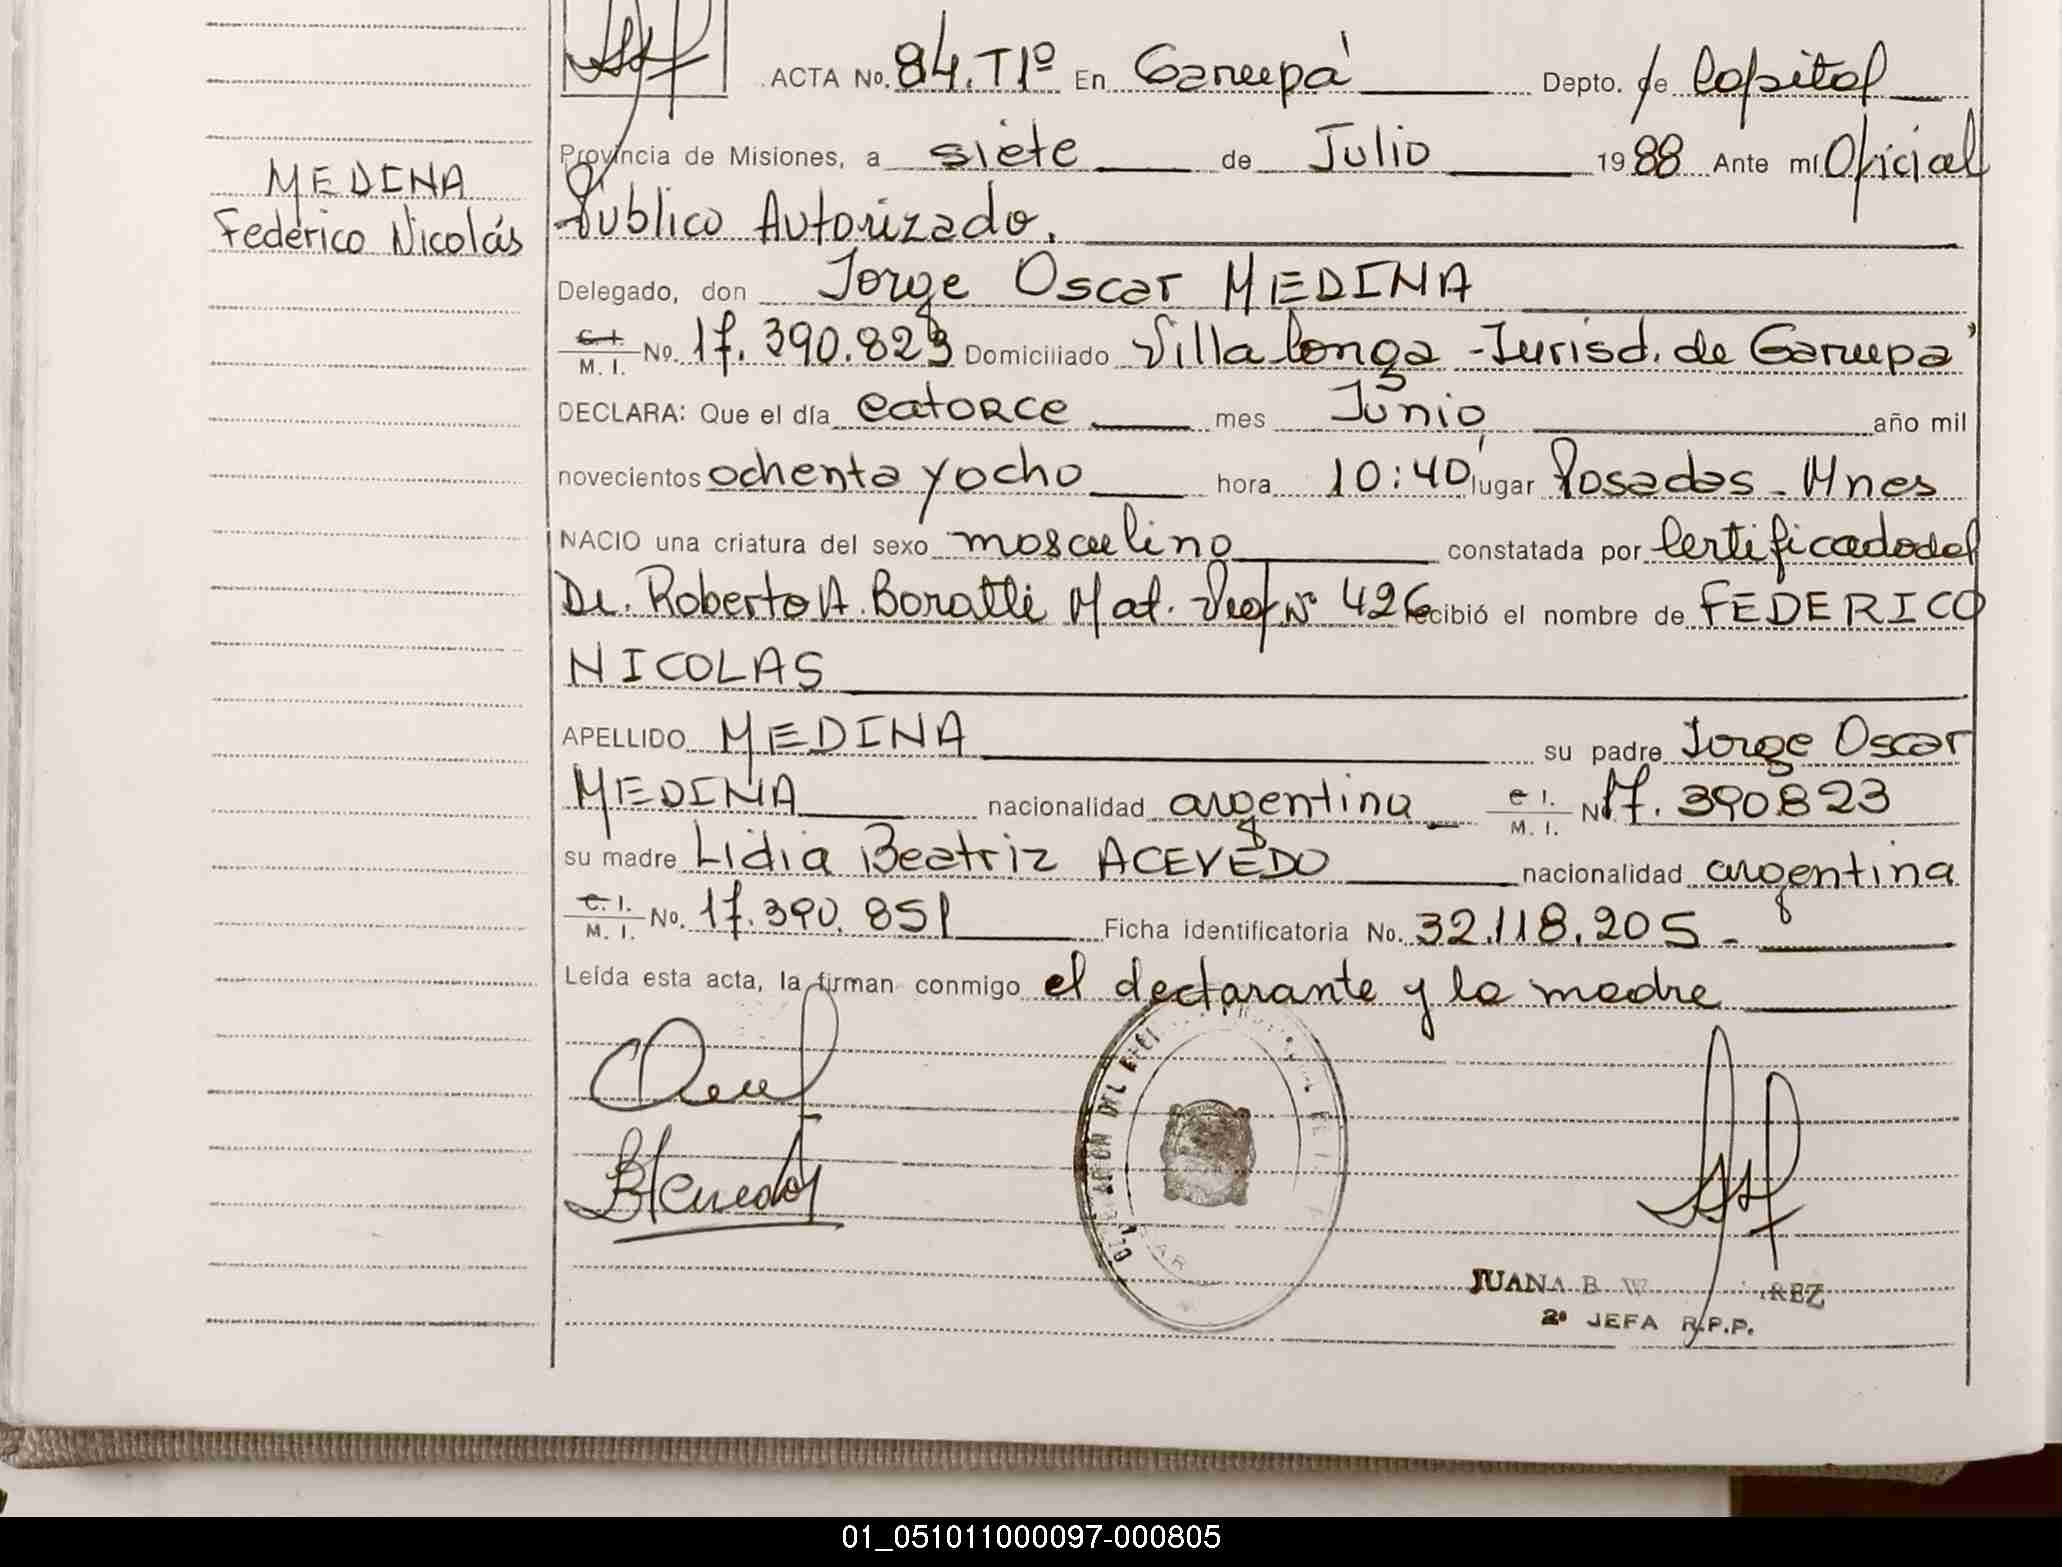 ACTA No. 84. T1º En Garupá Depto. de Capital
Provincia de Misiones, a siete de Julio 1988 Ante mí Oficial
MEDINA
Federico Nicolás
Público Autorizado.
Delegado, don Jorge Oscar MEDINA
C. I. M. I. No. 17.390.823 Domiciliado Villa Longa - Jurisd. de Garupá
DECLARA: Que el día catorce mes Junio año mil
novecientos ochenta y ocho hora 10:40 lugar Posadas - Mnes
NACIO una criatura del sexo masculino constatada por Certificado del
Dr. Roberto A. Boratti Mat. Prof Nº 426 recibió el nombre de FEDERICO
NICOLAS
APELLIDO MEDINA su padre Jorge Oscar
MEDINA nacionalidad argentina C. I. M. I. N 17.390.823
su madre Lidia Beatriz ACEVEDO nacionalidad argentina
C. I. M. I. No. 17.390.851 Ficha identificatoria No. 32.118.205 -
Leída esta acta, la firman conmigo el declarante y la madre
JUANA B. REZ
2º JEFA R.P.P.
01_051011000097-000805